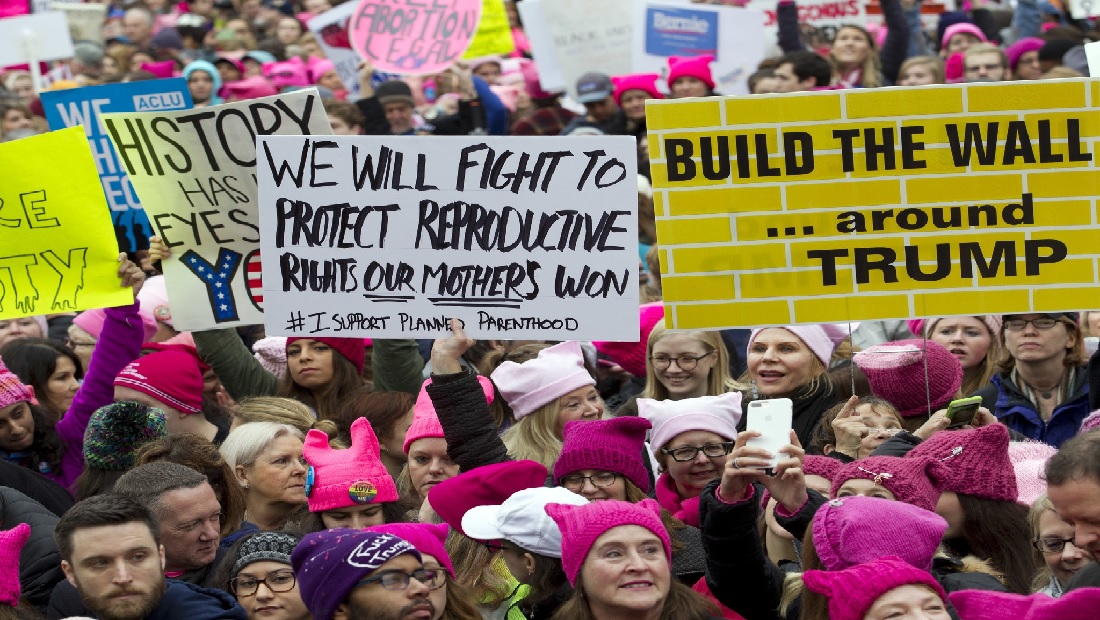 KEEP
ABORTION
LEGAL
Bernie
ACLU
WE
HISTORY
HAS
EYES
YO
WE WILL FIGHT TO
PROTECT REPRODUCTIVE
RIGHTS OUR MOTHER'S WON
#I SUPPORT PLANNED PARENTHOOD
BUILD THE WALL
... around
TRUMP
LOVE
Fuck
Trump